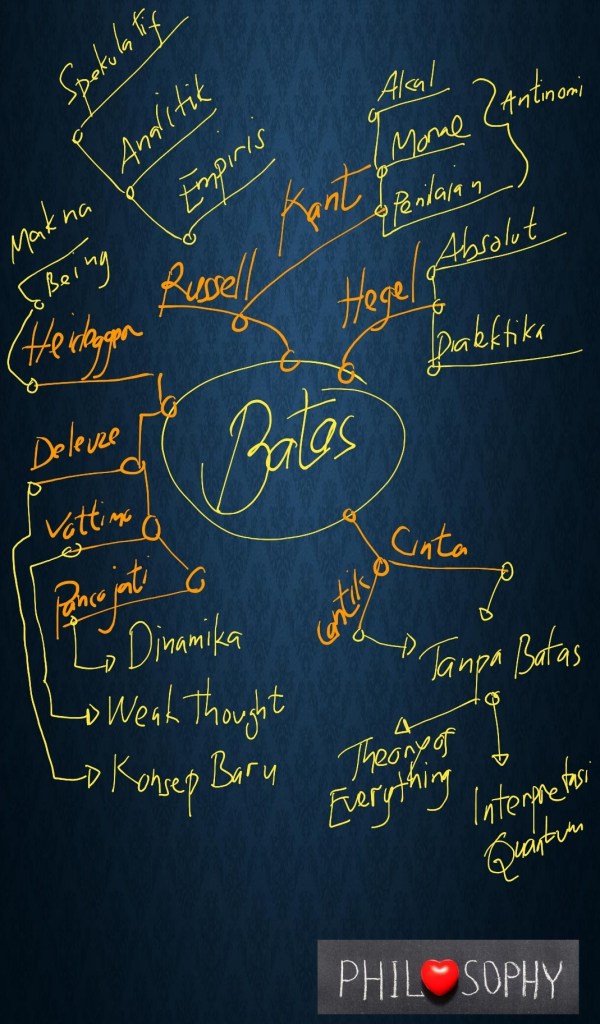 Spekulatif
Analitik
Empiris
Akal
Moral
Penilaian
Antinomi
Kant
Makna
Being
Russell
Hegel
Absolut
Dialektika
Heidegger
Batas
Deleuze
Vattimo
Pancajati
Cinta
Cantik
Dinamika
Weak Thought
Konsep Baru
Tanpa Batas
Theory of
Everything
Interpretasi
Quantum
PHIL SOPHY